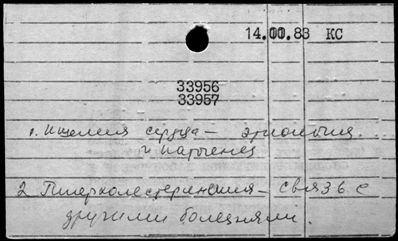 14.00.83 КС
33956
33957
1. Ишемия сердца – этиология
и патогенез
2 Гиперхолестеринемия – связь с
другими болезнями.